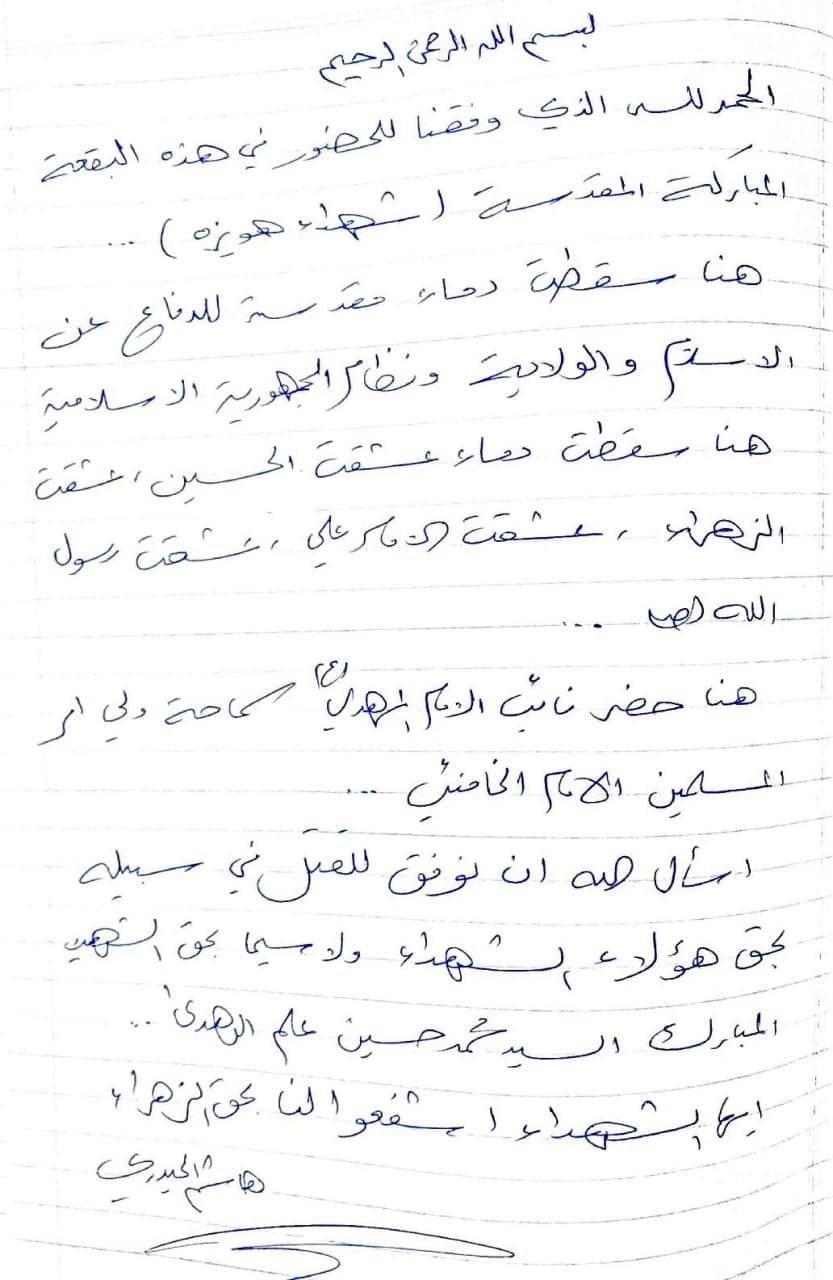 بسم الله الرحمن الرحيم
الحمد لله الذي وفقنا للحضور في هذه البقعة
المباركة المقدسة (شهداء هويزه) ...
هنا سقطت دماء مقدسة للدفاع عن
الاسلام والولاية ونظام الجمهورية الاسلامية
هنا سقطت دماء عشقت الحسين، عشقت
الزهراء، عشقت الامام علي، عشقت رسول
الله (ص) ...
هنا حضر نائب الامام المهدي (ع) سماحة ولي امر
المسلمين الامام الخامنئي ...
اسأل الله ان نوفق للقتل في سبيله
بحق هؤلاء الشهداء ولا سيما بحق الشهيد
المبارك السيد محمد حسين علم الهدى ...
ايها الشهداء اشفعوا لنا بحق الزهراء
هاشم الحيدري